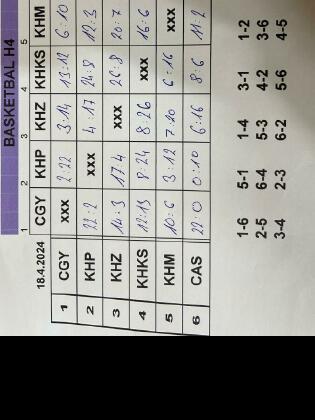 BASKETBAL H4
1 2 3 4 5
18.4.2024 CGY KHP KHZ KHKS KHM
1 CGY xxx 2:22 3:14 13:12 6:10
2 KHP 22:2 xxx 4:17 24:8 12:3
3 KHZ 14:3 17:4 xxx 26:8 20:7
4 KHKS 12:13 8:24 8:26 xxx 16:6
5 KHM 10:6 3:12 7:20 6:16 xxx
6 CAS 22:0 0:10 6:16 8:6 11:2
1-6 5-1 1-4 3-1 1-2
2-5 6-4 5-3 4-2 3-6
3-4 2-3 6-2 5-6 4-5